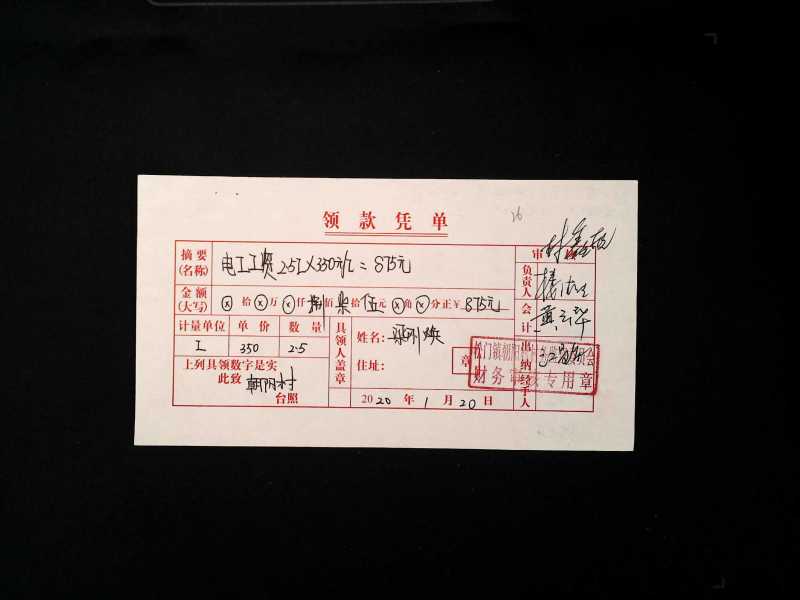 领款凭单
26
摘要(名称) 电工工资 2.5工×350元/工=875元
金额(大写) ⓧ拾ⓧ万ⓧ仟捌佰柒拾伍元ⓧ角ⓧ分正¥875元
计量单位 单价 数量
工 350 2.5
上列具领数字是实
此致 朝阳村
台照
具领人盖章
姓名:
住址:
章
2020年1月20日
审
负责人
会计
出纳
经手人
松门镇朝阳村
财务 专用章